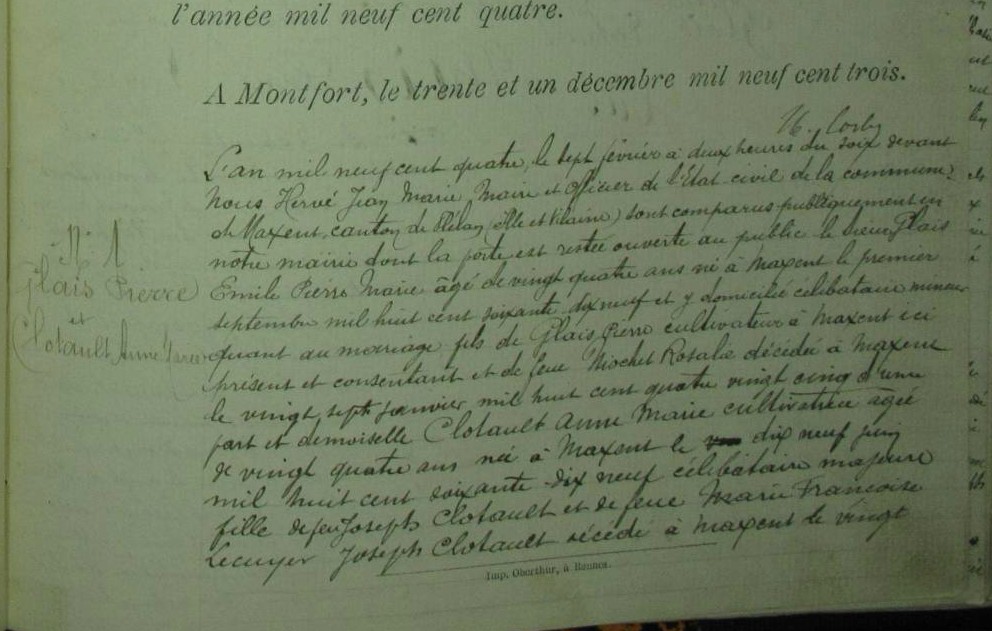 l'année mil neuf cent quatre.
A Montfort, le trente et un décembre mil neuf cent trois.
L'an mil neuf cent quatre, le sept février à deux heures du soir devant
Nous Hervé Jean Marie, Maire et Officier de l'Etat civil de la commune
de Maxent, canton de Plélan (Ille et Vilaine) sont comparus publiquement en
notre mairie dont la porte est restée ouverte au public le sieur Glais
Emile Pierre Marie âgé de vingt quatre ans né à Maxent le premier
septembre mil huit cent soixante dix neuf et y domicilié célibataire mineur
quant au mariage fils de Glais Pierre cultivateur à Maxent ici
présent et consentant et de feue Nochet Rosalie décédée à Maxent
le vingt sept janvier mil huit cent quatre vingt cinq d'une
part et demoiselle Clotault Anne Marie cultivatrice âgée
de vingt quatre ans née à Maxent le dix neuf juin
mil huit cent soixante dix neuf célibataire majeure
fille de feu Joseph Clotault et de feue Marie Françoise
Lecuyer Joseph Clotault décédé à Maxent le vingt
N. 1
Glais Pierre
et
Clotault Anne Marie
Imp. Oberthur, à Rennes.